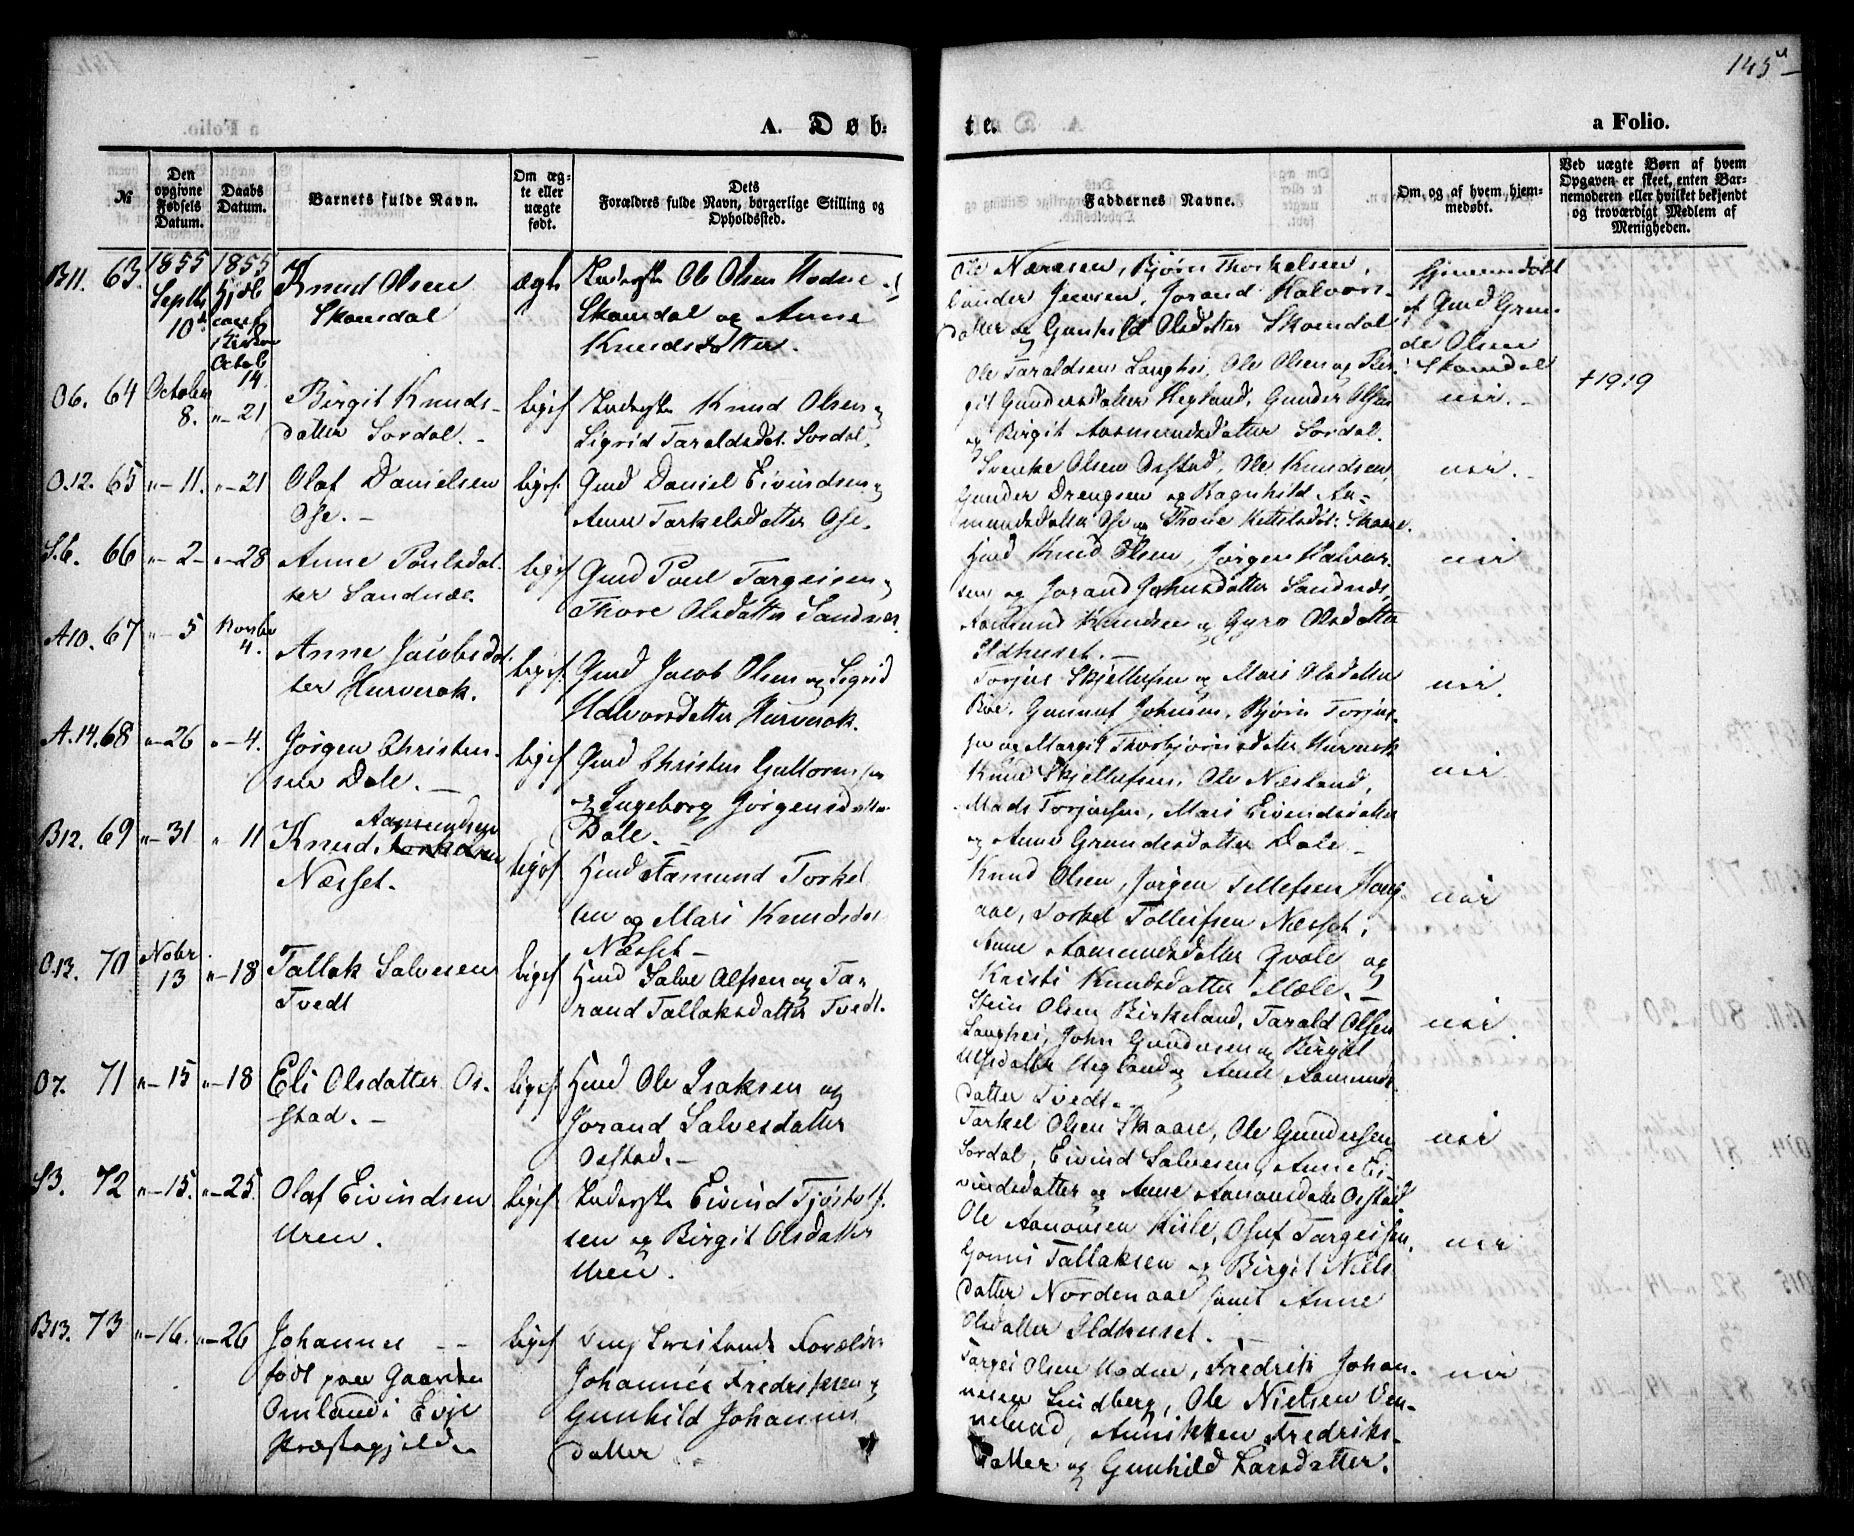 145
A. Døb-
te.
a Folio.
№
Den opgivne Fødsels Datum.
Daabs Datum.
Barnets fulde Navn.
Om ægte eller uægte født.
Dets Forældres fulde Navn, borgerlige Stilling og Opholdssted.
Faddernes Navne.
Om, og af hvem, hjemmedøbt.
Ved uægte Børn af hvem Opgaven er skeet, enten Barnemoderen eller hvilket bekjendt og troværdigt Medlem af Menigheden.
B11. 63.
1855 Septbr 10
1855 Hjdb conf i Kirken Octob 14.
Knud Olsen
Skomdal
ægte
Inderste Ole Olsen Hodne
Skomdal og Anne
Knudsdatter.
Ole Næresen, Bjørn Thorkelsen,
Gunder Jensen, Jorand Halvors-
datter og Gunhild Olsdatter Skomdal
Hjemmedøbt
af Gmd Grun-
de Olsen
Skomdal
O6. 64
October 8.
"-21
Birgit Knuds-
datter Sordal.-
liges.
Inderste Knud Olsen og
Sigrid Taraldsdat. Sordal.
Ole Taraldsen Langhei, Ole Olsen og Bir-
git Gundersdatter Hegland, Gunder Olsen
og Birgit Aasmundsdatter Sordal.
nei.-
+1919
O.12. 65
"-11.
"-21
Olaf Danielsen
Ose.-
ligef.
Gmd Daniel Eivindsen og
Anne Tarkelsdatter Ose.
Svenke Olsen Ostad, Ole Knudsen,
Gunder Drengsen og Ragnhild Aa-
mundsdatter Ose og Thone Kettelsdat. Skaare.
nei.-
S.6. 66
"-2-
"-28
Anne Poulsdat-
ter Sandnæs.
ligef
Gmd Poul Targeisen og
Thore Olsdatter Sandnæs.
Hmd Knud Olsen, Jørgen Halvor-
sen og Jorand Johnsdatter Sandnes,
Aasmund Knudsen og Gyro Olsdatter
Ildhuset.-
nei
A10. 67
"-5
Novbr 4.
Anne Jacobsdat-
ter Hurverak.
ligef.
Gmd Jacob Olsen og Sigrid
Halvorsdatter Hurverak.
Torjus Skjellefsen og Mari Olsdatter
Bøe, Gunnuf Johnsen, Bjørn Torjus-
sen og Margit Thorbjørnsdatter Hurverak
nei.
A.14. 68
"-26
"-4.
Jørgen Christen-
sen Dale.-
ligef
Gmd Christen Guttormsen
og Ingeborg Jørgensdatter
Dale.-
Knud Skjellefsen, Ole Næsland,
Mads Torjussen, Mari Eivindsdatter
og Anne Grundesdatter Dale-
nei
B12. 69
"-31
" 11
Aasmundsen
Knud
Næsset.
ligef
Hmd Aasmund Torkel
sen og Mari Knudsdat
Næsset-
Knud Olsen, Jørgen Tellefsen Haug-
aae, Torkel Tolleifsen Næsset,
Anne Aasmundsdatter Qvale og
Kristi Knudsdatter Mæle.-
nei
O.13. 70
Novbr 13
"-18
Tallak Salvesen
Tvedt
ligef
Hmd Salve Alfsen og Ta-
rand Tallaksdatter Tvedt.
Stein Olsen Birkeland, Tarald Olsen
Langhei, John Gundersen og Birgit
Ulfsdatter Hegland og Anne Aamunds-
datter Tvedt.-
nei.
O7. 71
"-15
"-18
Eli Olsdatter Os-
stad.-
ligef
Hmd Ole Isaksen og
Jorand Salvesdatter
Osstad.-
Tarkel Olsen Skaare, Ole Gundersen
Sordal, Eivind Salvesen, Anne Ei-
vindsdatter og Anne Aanonsdatter Osstad.
nei
S3. 72
"-15.
"-25.
Olaf Eivindsen
Uren.
ligef.
Inderste Eivind Tjøstolf
sen og Birgit Olsdatter
Uren.
Ole Aanonsen Kiile, Osuf Targeisen,
Gonni Tallaksen og Birgit Niels
datter Nordenaae samt Anne
Olsdatter Ildhuset.-
nei
B13. 73
"-16.
"-26
Johannes --
født paa Gaarden
Omland i Evje
Præstegjeld.
ligef
Omstreifende Forældre
Johannes Fredriksen og
Gunhild Johannes
datter
Targei Olsen Hodne, Fredrik Johan-
nesen Lindberg, Ole Nielsen Ven-
neland, Annikken Fredriks-
datter og Gunhild Larsdatter.
nei